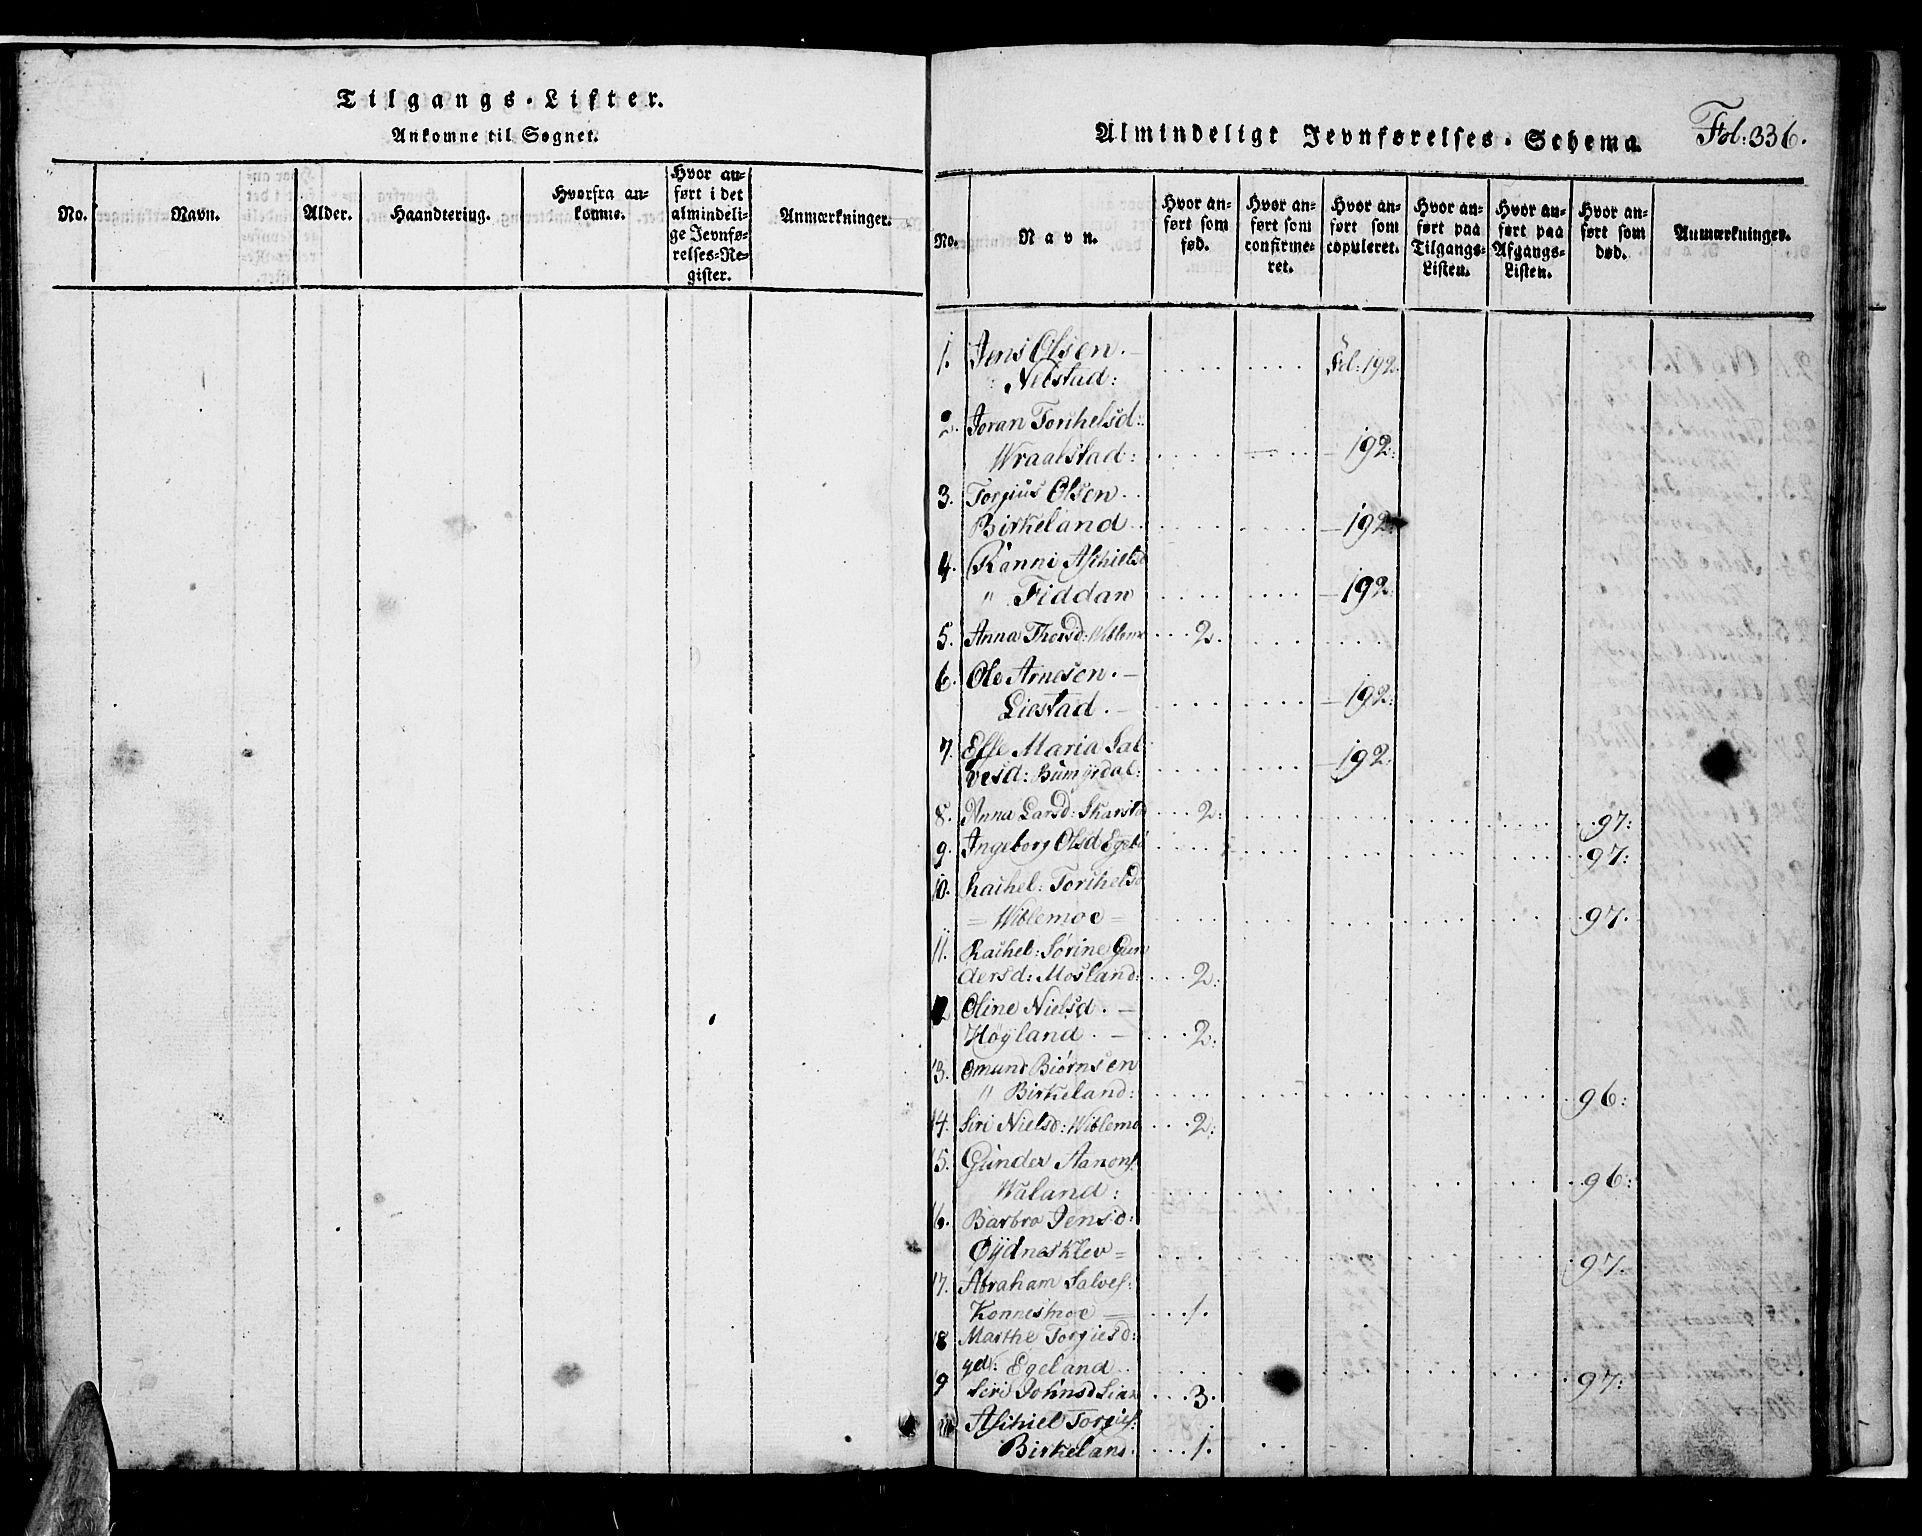 Tilgangs-Lister.
Ankomne til Sognet.
No.
Navn.
Alder.
Haandtering.
Hvorfra an-
komne.
Hvor an-
ført i det
almindeli-
ge Jevnfø-
relses-Re-
gister.
Anmærkninger.
Almindeligt Jevnførelses-Schema.
Fol: 336.
No.
Navn.
Hvor an-
ført som
fød.
Hvor an-
ført som
confirme-
ret.
Hvor an-
ført som
copuleret.
Hvor an-
ført paa
Tilgangs-
Listen.
Hvor an-
ført paa
Afgangs-
Listen.
Hvor an-
ført som
død.
Anmærkninger.
1. Jens Olsen.
Nebstad: Fol: 192.
2. Joran Torkelsd:
Wraalstad: 192.
3. Torjius Olsen
Birkeland 192.
4. Ranni
" Fiddan 192.
5. Anna 2.
6. Ole Arnesen.
Liestad. 192.
7. Elle Maria Sal
vesd: 192.
8. Anna Larsd: 2. 97:
9. Ingeborg Olsd 97:
10. Rachel: Torkelsd
Wiblemoe 97.
11. Rachel: Sørine Gun
dersd: Mosland: 2.
12 Oline Nielsd.
Høyland. 2:
13. Omund Biørnsen
" Birkeland: 96:
14. Siri Nielsd: Wiblemo 2:
15. Gunder Aanons.
Waland: 96:
16. Barbro Jensd:
Øydnesklev 97.
17. Abraham Salves:
Konnesmoe 1.
18 Marthe Torjiesd:
Egeland 97:
9 Siri Johnsd 3.
Torjies:
Birkeland. 1.